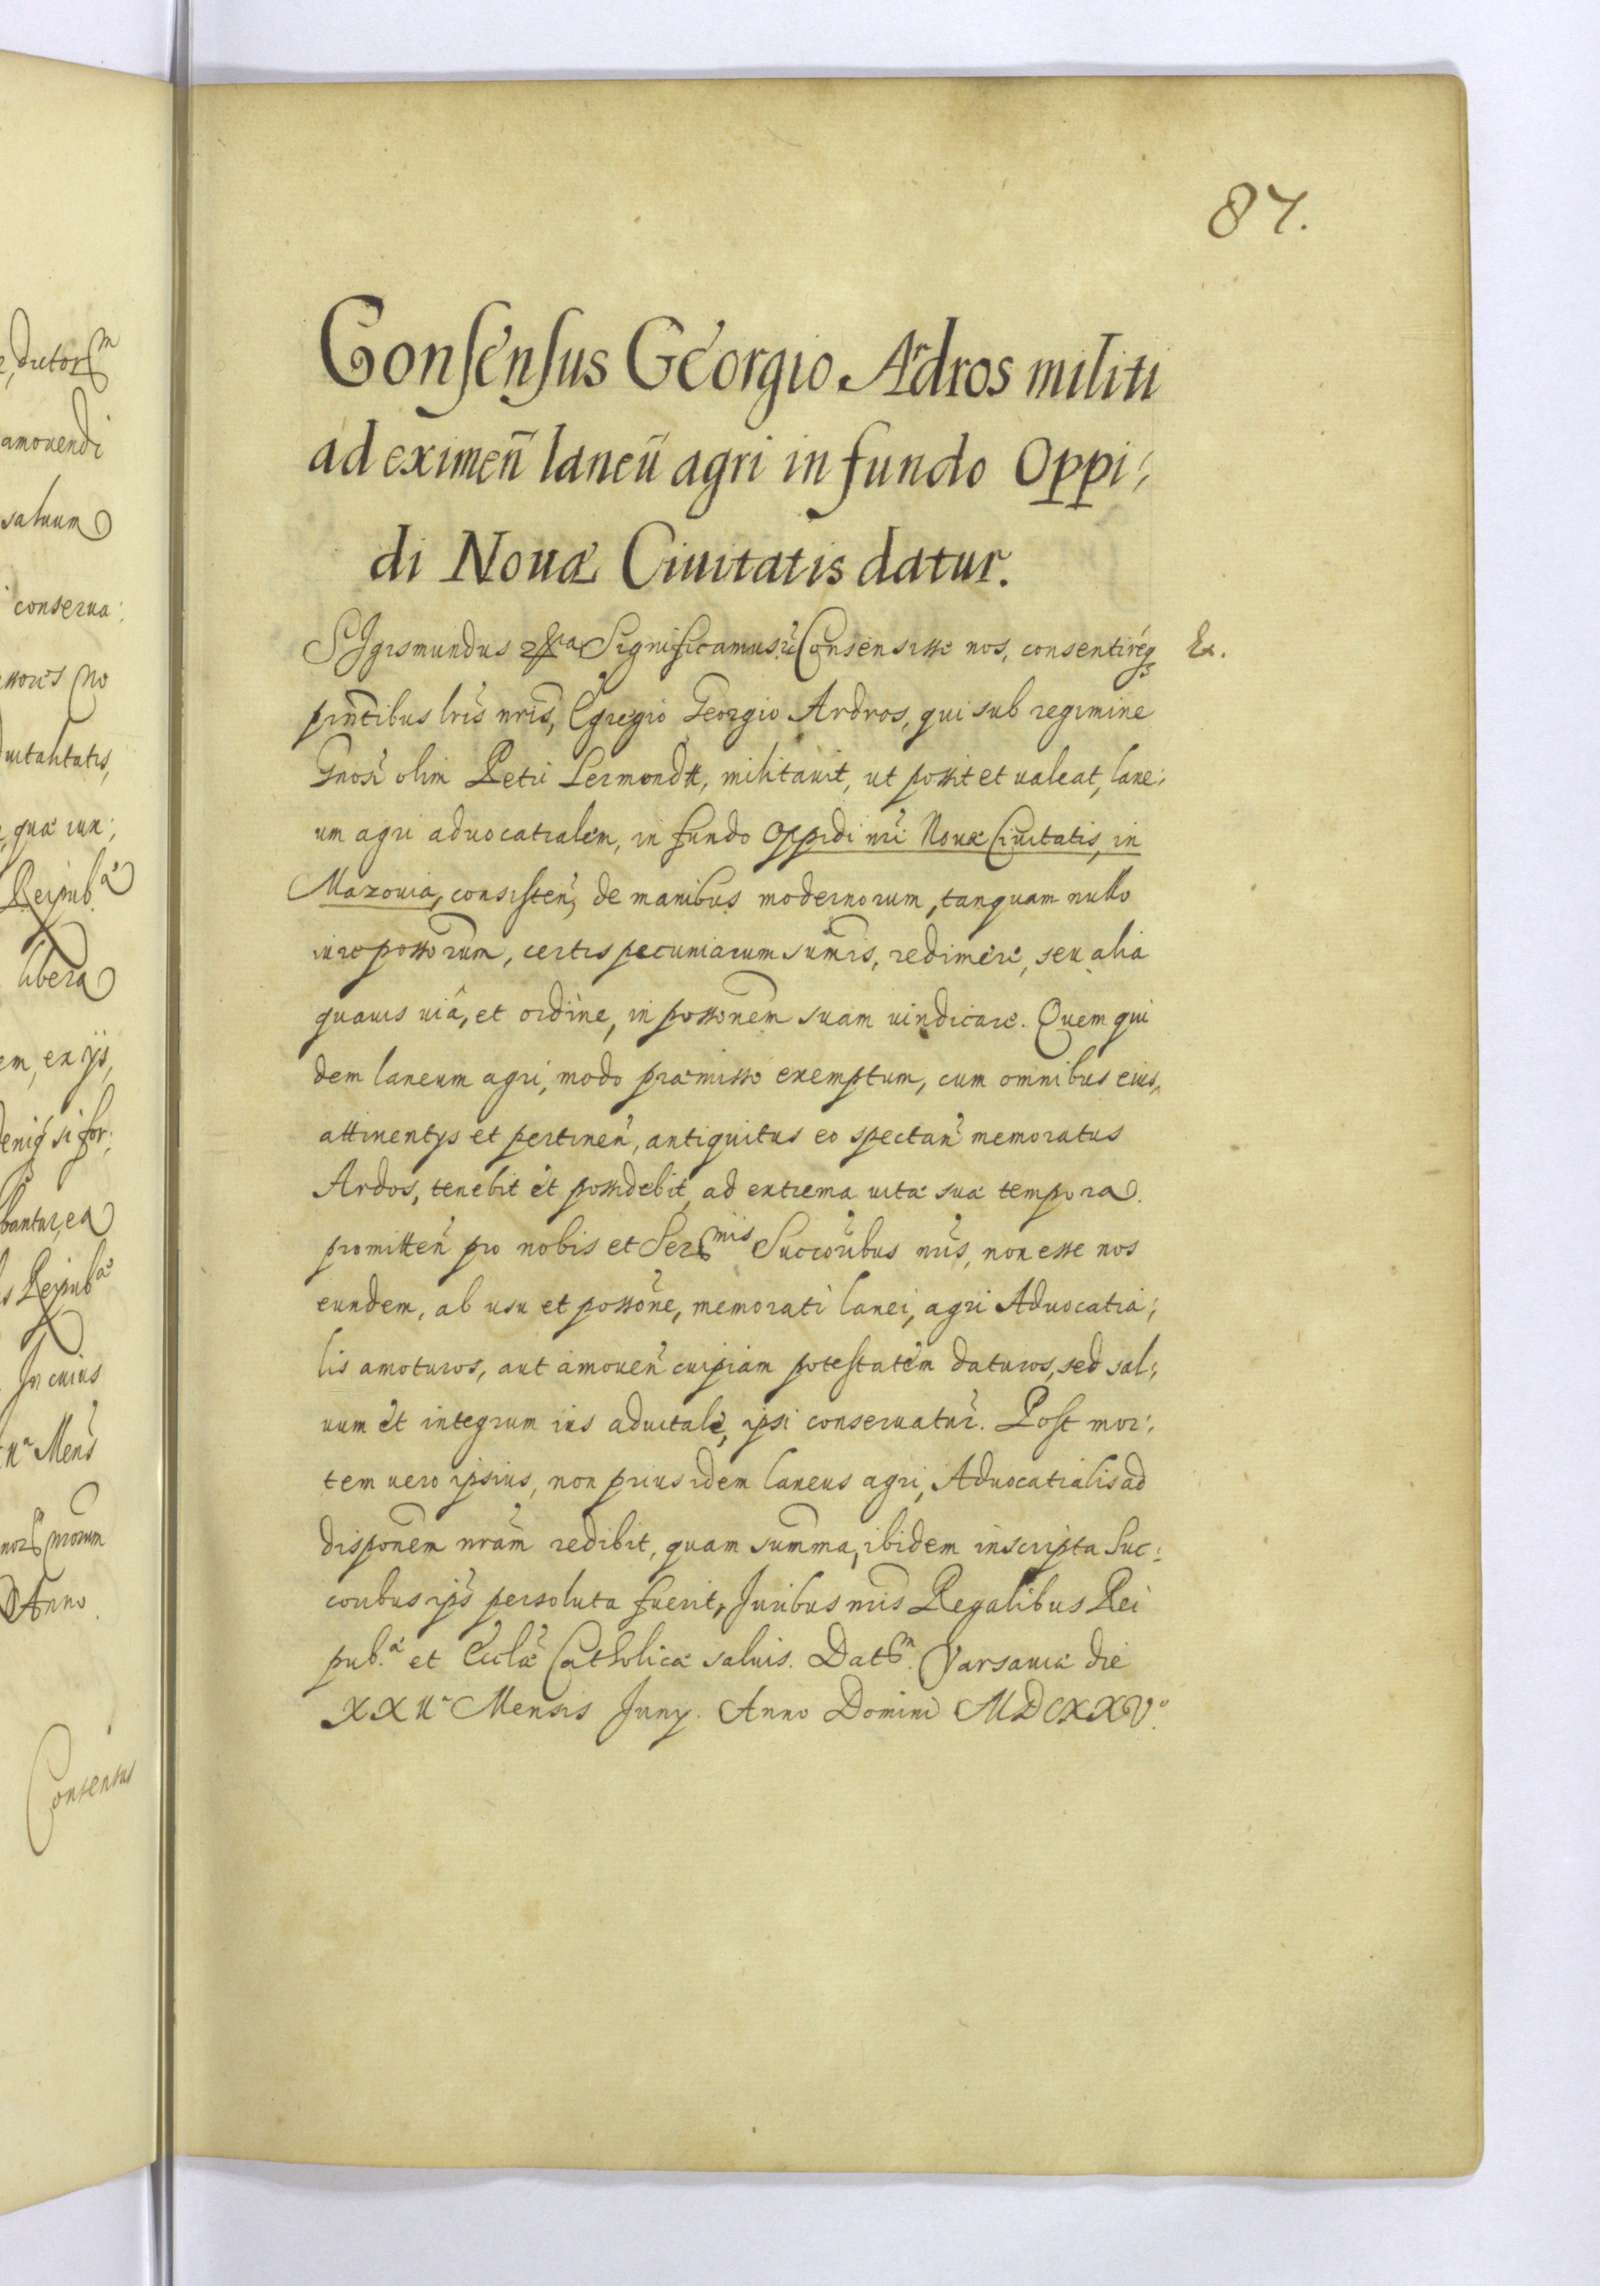 87.
Consensus Georgio Ardros militi
ad eximeñ laneũ agri in fundo Oppi:
di Nouæ Ciuitatis datur.
SIgismundus Significamus Consensisse nos, consentireq Ex.
pñtibus lris nris, Egregio Georgio Ardros, qui sub regimine
Gnosi olim Petri Lermondtt, militauit, ut possit et ualeat, lane:
um agri aduocatialem, in fundo Oppidi nri Nouæ Ciuitatis, in
Mazouia, consisteñ, de manibus modernorum, tanquam nullo
iure possorum, certis pecuniarum sumis, redimere, seu alia
quauis uiâ, et ordine, in possonem suam uindicare. Quem qui
dem laneum agri, modo præmisso exemptum, cum omnibus eius,
attinentys et pertineñ, antiquitus eo spectañ memoratus
Ardos, tenebit et possidebit, ad extrema uitæ suæ tempora.
promitteñ pro nobis et Ser^mis Succoribus nris, non esse nos
eundem, ab usu et possone, memorati lanei, agri Aduocatia:
lis amoturos, aut amoueñ cuipiam potestatem daturos, sed sal:
uum et integrum ius aduitale, ipsi conseruatur. Post mor:
tem uero ipsius, non prius idem laneus agri, Aduocatialis ad
disponem nram redibit, quam summa, ibidem inscripta Suc:
coribus ips persoluta fuerit, Juribus nris Regalibus Rei
pub.æ et Ecclæ Catholicæ saluis. Dat. Varsauiæ die
XXIIª Mensis Juny. Anno Domini MDCXXVº.
dictor
amouendi
saluum
conserua:
no
quæ iux:
Reipub.æ
libera
em, ex ijs,
si for:
bantur, ea
Reipubæ
In cuius
Mens
nrorum
Anno.
Consensus